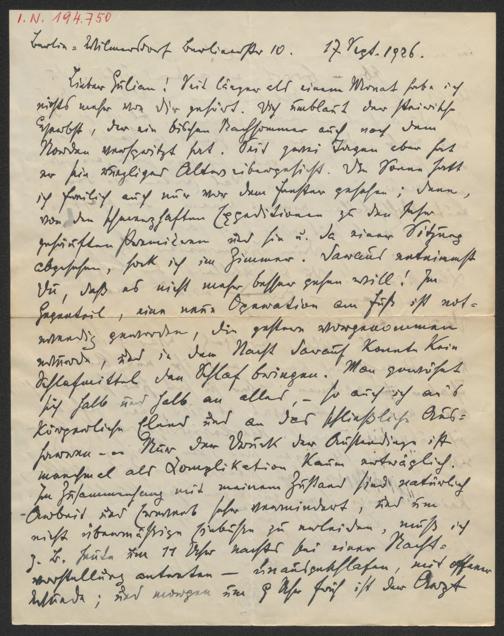 I.N. 194.750
Berlin-Wilmersdorf Berlinerstr 10. 17. Sept. 1926.
Lieber Gulian! Seit länger als einem Monat habe ich
nichts mehr von dir gehört. Dich umblaut der steirische
Herbst, der ein bischen Nachsommer auch nach dem
Norden verspritzt hat. Seit zwei Tagen aber hat
er sein Altersübergesicht. Die Sonne hatt
ich freilich auch nur vor dem Fenster gesehen; denn,
von den schmerzhaften Expeditionen zu den sehr
gehäuften Premieren und hin u. da einer Sitzung
abgesehen, hock ich im Zimmer. Daraus entnimmst
Du, daß es nicht mehr besser gehen will! Im
Gegenteil, eine neue Operation am Fuß ist not-
wendig geworden, die gestern vorgenommen
wurde, und in der Nacht darauf konnte kein
Schlafmittel den Schlaf bringen. Man gewöhnt
sich halb und halb an alles, – so auch ich an's
körperliche Elend und an das schließliche Aus-
harren – Nur der Druck der Außendinge ist
manchmal als Komplikation kaum erträglich.
Im Zusammenhang mit meinem Zustand sind natürlich
Arbeit und Erwerb sehr vermindert, und um
nicht übermäßige Einbußen zu erleiden, muß ich
z. B. heute um 11 Uhr nachts bei einer Nacht-
vorstellung antreten – mit offener
Wunde; und morgen um 9 Uhr früh ist der Arzt